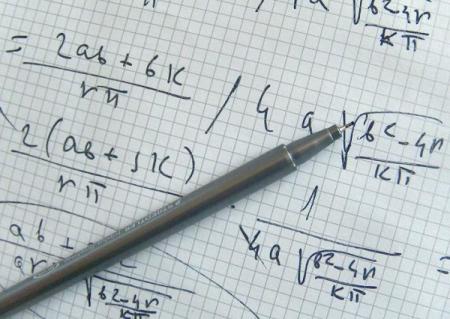 √(b2-4r / Kπ)
= 2ab + 6K / rπ / 4a √(bc-4r / Kπ)
2(ab + 3K) / rπ · 1 / 4a √(b2-4r / Kπ) =
ab +
√(b2-4r / Kπ)